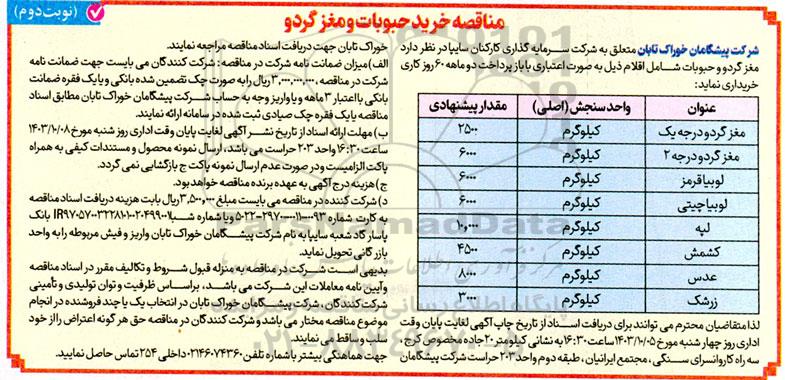 (نوبت دوم)
مناقصه خرید حبوبات و مغز گردو
شرکت پیشگامان خوراک تابان متعلق به شرکت سرمایه گذاری کارکنان سایپا در نظر دارد
مغز گردو و حبوبات شامل اقلام ذیل به صورت اعتباری با باز پرداخت دو ماهه ۶۰ روز کاری
خریداری نماید:
عنوان واحد سنجش (اصلی) مقدار پیشنهادی
مغز گردو درجه یک کیلوگرم ۲۵۰۰
مغز گردو درجه ۲ کیلوگرم ۶۰۰۰
لوبیا قرمز کیلوگرم ۶۰۰۰
لوبیا چیتی کیلوگرم ۶۰۰۰
لپه کیلوگرم ۱۰,۰۰۰
کشمش کیلوگرم ۴۵۰۰
عدس کیلوگرم ۸۰۰۰
زرشک کیلوگرم ۳۰۰۰
لذا متقاضیان محترم می توانند برای دریافت اسناد از تاریخ چاپ آگهی لغایت پایان وقت
اداری روز چهار شنبه مورخ ۱۴۰۳/۱۰/۰۵ ساعت ۱۶:۳۰ به نشانی کیلومتر ۲۰ جاده مخصوص کرج،
سه راه کاروانسرای سنگی، مجتمع ایرانیان، طبقه دوم واحد ۲۰۳ حراست شرکت پیشگامان
خوراک تابان جهت دریافت اسناد مناقصه مراجعه نمایند.
الف) میزان ضمانت نامه شرکت در مناقصه: شرکت کنندگان می بایست جهت ضمانت نامه
شرکت در مناقصه، ۳,۰۰۰,۰۰۰,۰۰۰ ریال را به صورت چک تضمین شده بانکی و یا یک فقره ضمانت
بانکی با اعتبار ۳ ماهه و یا واریز وجه به حساب شرکت پیشگامان خوراک تابان مطابق اسناد
مناقصه یا یک فقره چک صیادی ثبت شده در سامانه ارائه نمایند.
ب) مهلت ارائه اسناد از تاریخ نشر آگهی لغایت پایان وقت اداری روز شنبه مورخ ۱۴۰۳/۱۰/۰۸
ساعت ۱۶:۳۰ واحد ۲۰۳ حراست می باشد، ارسال نمونه محصول و مستندات کیفی به همراه
پاکت الزامیست و در صورت عدم ارسال نمونه پاکت ج بازگشایی نمی گردد.
ج) هزینه درج آگهی به عهده برنده مناقصه خواهد بود.
د) شرکت کننده در مناقصه می بایست مبلغ ۳,۵۰۰,۰۰۰ ریال بابت هزینه دریافت اسناد مناقصه
به کارت شماره و یا شماره شبا بانک
پاسارگاد شعبه سایپا به نام شرکت پیشگامان خوراک تابان واریز و فیش مربوطه را به واحد
بازرگانی تحویل نماید.
بدیهی است شرکت در مناقصه به منزله قبول شروط و تکالیف مقرر در اسناد مناقصه
و آیین نامه معاملات این شرکت می باشد، براساس ظرفیت و توان تولیدی و تأمینی
شرکت کنندگان، شرکت پیشگامان خوراک تابان در انتخاب یک یا چند فروشنده در انجام
موضوع مناقصه مختار می باشد و شرکت کنندگان در مناقصه حق هر گونه اعتراض را از خود
سلب و ساقط می نمایند.
جهت هماهنگی بیشتر با شماره تلفن ۰۲۱۴۶۰۷۴۳۶۰ داخلی ۲۵۴ تماس حاصل نمایید.
ParsNamadData